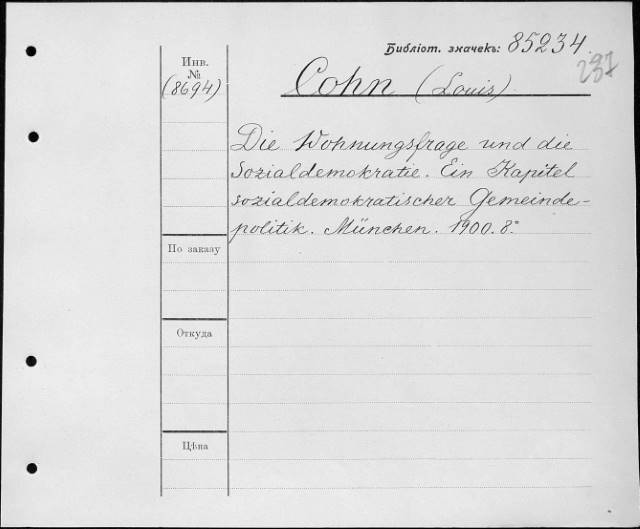 Библіот. значекъ: 85234.
237
Инв.
№
(8694)
Cohn (Louis)
Die Wohnungsfrage und die
Sozialdemokratie. Ein Kapitel
sozialdemokratischer Gemeinde-
politik. München. 1900. 8.°
По заказу
Откуда
Цѣна